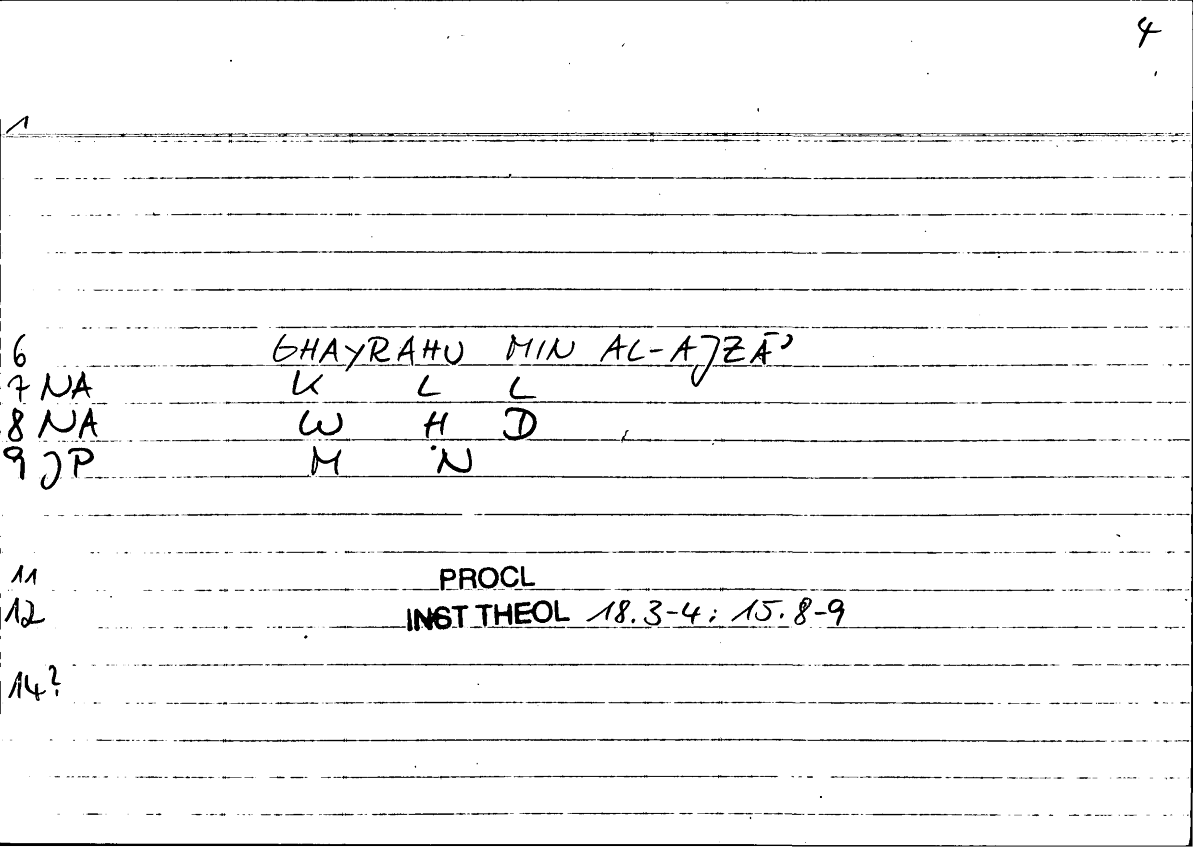 4
1
6 GHAYRAHU MIN AL-AJZĀʾ
7 NA K L L
8 NA W H D
9 JP M N
11 PROCL
12 INST THEOL 18.3-4; 15.8-9
14?